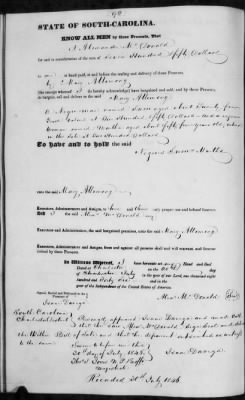 STATE OF SOUTH-CAROLINA.
KNOW ALL MEN by these Presents, That
I Alexander McDonald
for and in consideration of the sum of Seven Hundred & fifty Dollars
to me in hand paid, at and before the sealing and delivery of these Presents,
by Mary Allemong
(the receipt whereof I do hereby acknowledge) have bargained and sold, and by these Presents,
do bargain, sell and deliver to the said Mary Allemong
A Negro man named aged about Twenty four
Years valued at Five Hundred & fifty Dollars and a negro
woman named Matta aged about fifty four years old, valued
at the sum of Two Hundred Dollars
To have and to hold the said
Negroes Matta
unto the said Mary Allemong
Executors, Administrators and Assigns, to her and their only proper use and behoof forever.
And I the said Alexr McDonald my
Executors and Administrators, the said bargained premises, unto the said Mary Allemong
Executors, Administrators and Assigns, from and against all persons shall and will warrant and forever
defend by these Presents.
In Witness Whereof, I have hereunto set my Hand and Seal
Dated at Charleston
on the day of July
in the year of our Lord one thousand eight
hundred and forty six and in the
year of the Independence of the United States of America.
Signed, Sealed and Delivered
in the Presence of
Alexr McDonald (Seal)
South Carolina
Charleston District
Personally appeared and made oath
that he saw Alexr McDonald sign seal and deliver
the Within Bill of Sale and that the deponent subscribed as witness
to the same
Sworn to before me this
20th day of July 1846
Magistrate
Recorded 20th July 1846